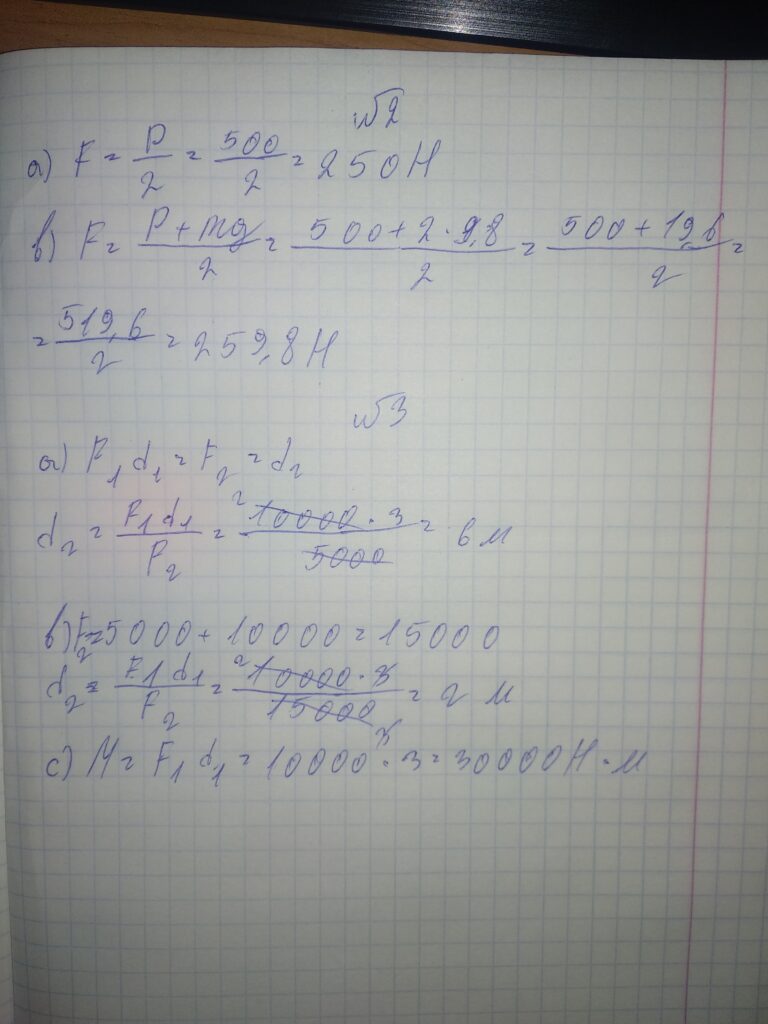 №2
a) F = P/2 = 500/2 = 250 Н
b) F = (P + mg)/2 = (500 + 2 · 9,8)/2 = (500 + 19,6)/2 =
= 519,6/2 = 259,8 Н
№3
a) F₁ d₁ = F₂ = d₂
d₂ = F₁d₁/F₂ = 10000 · 3/5000 = 6 м
b) F₂ = 5000 + 10000 = 15000
d₂ = F₁d₁/F₂ = 10000 · 3/15000 = 2 м
c) M = F₁ d₁ = 10000 · 3 = 30000 Н · м